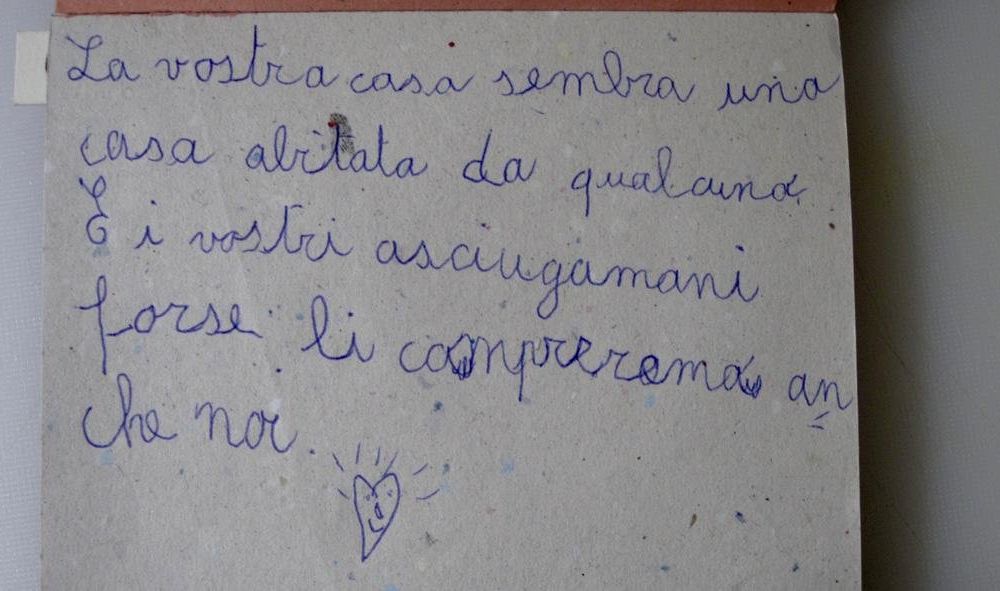 La vostra casa sembra una
casa abitata da qualcuno
E i vostri asciugamani
forse li compreremo an
che noi.